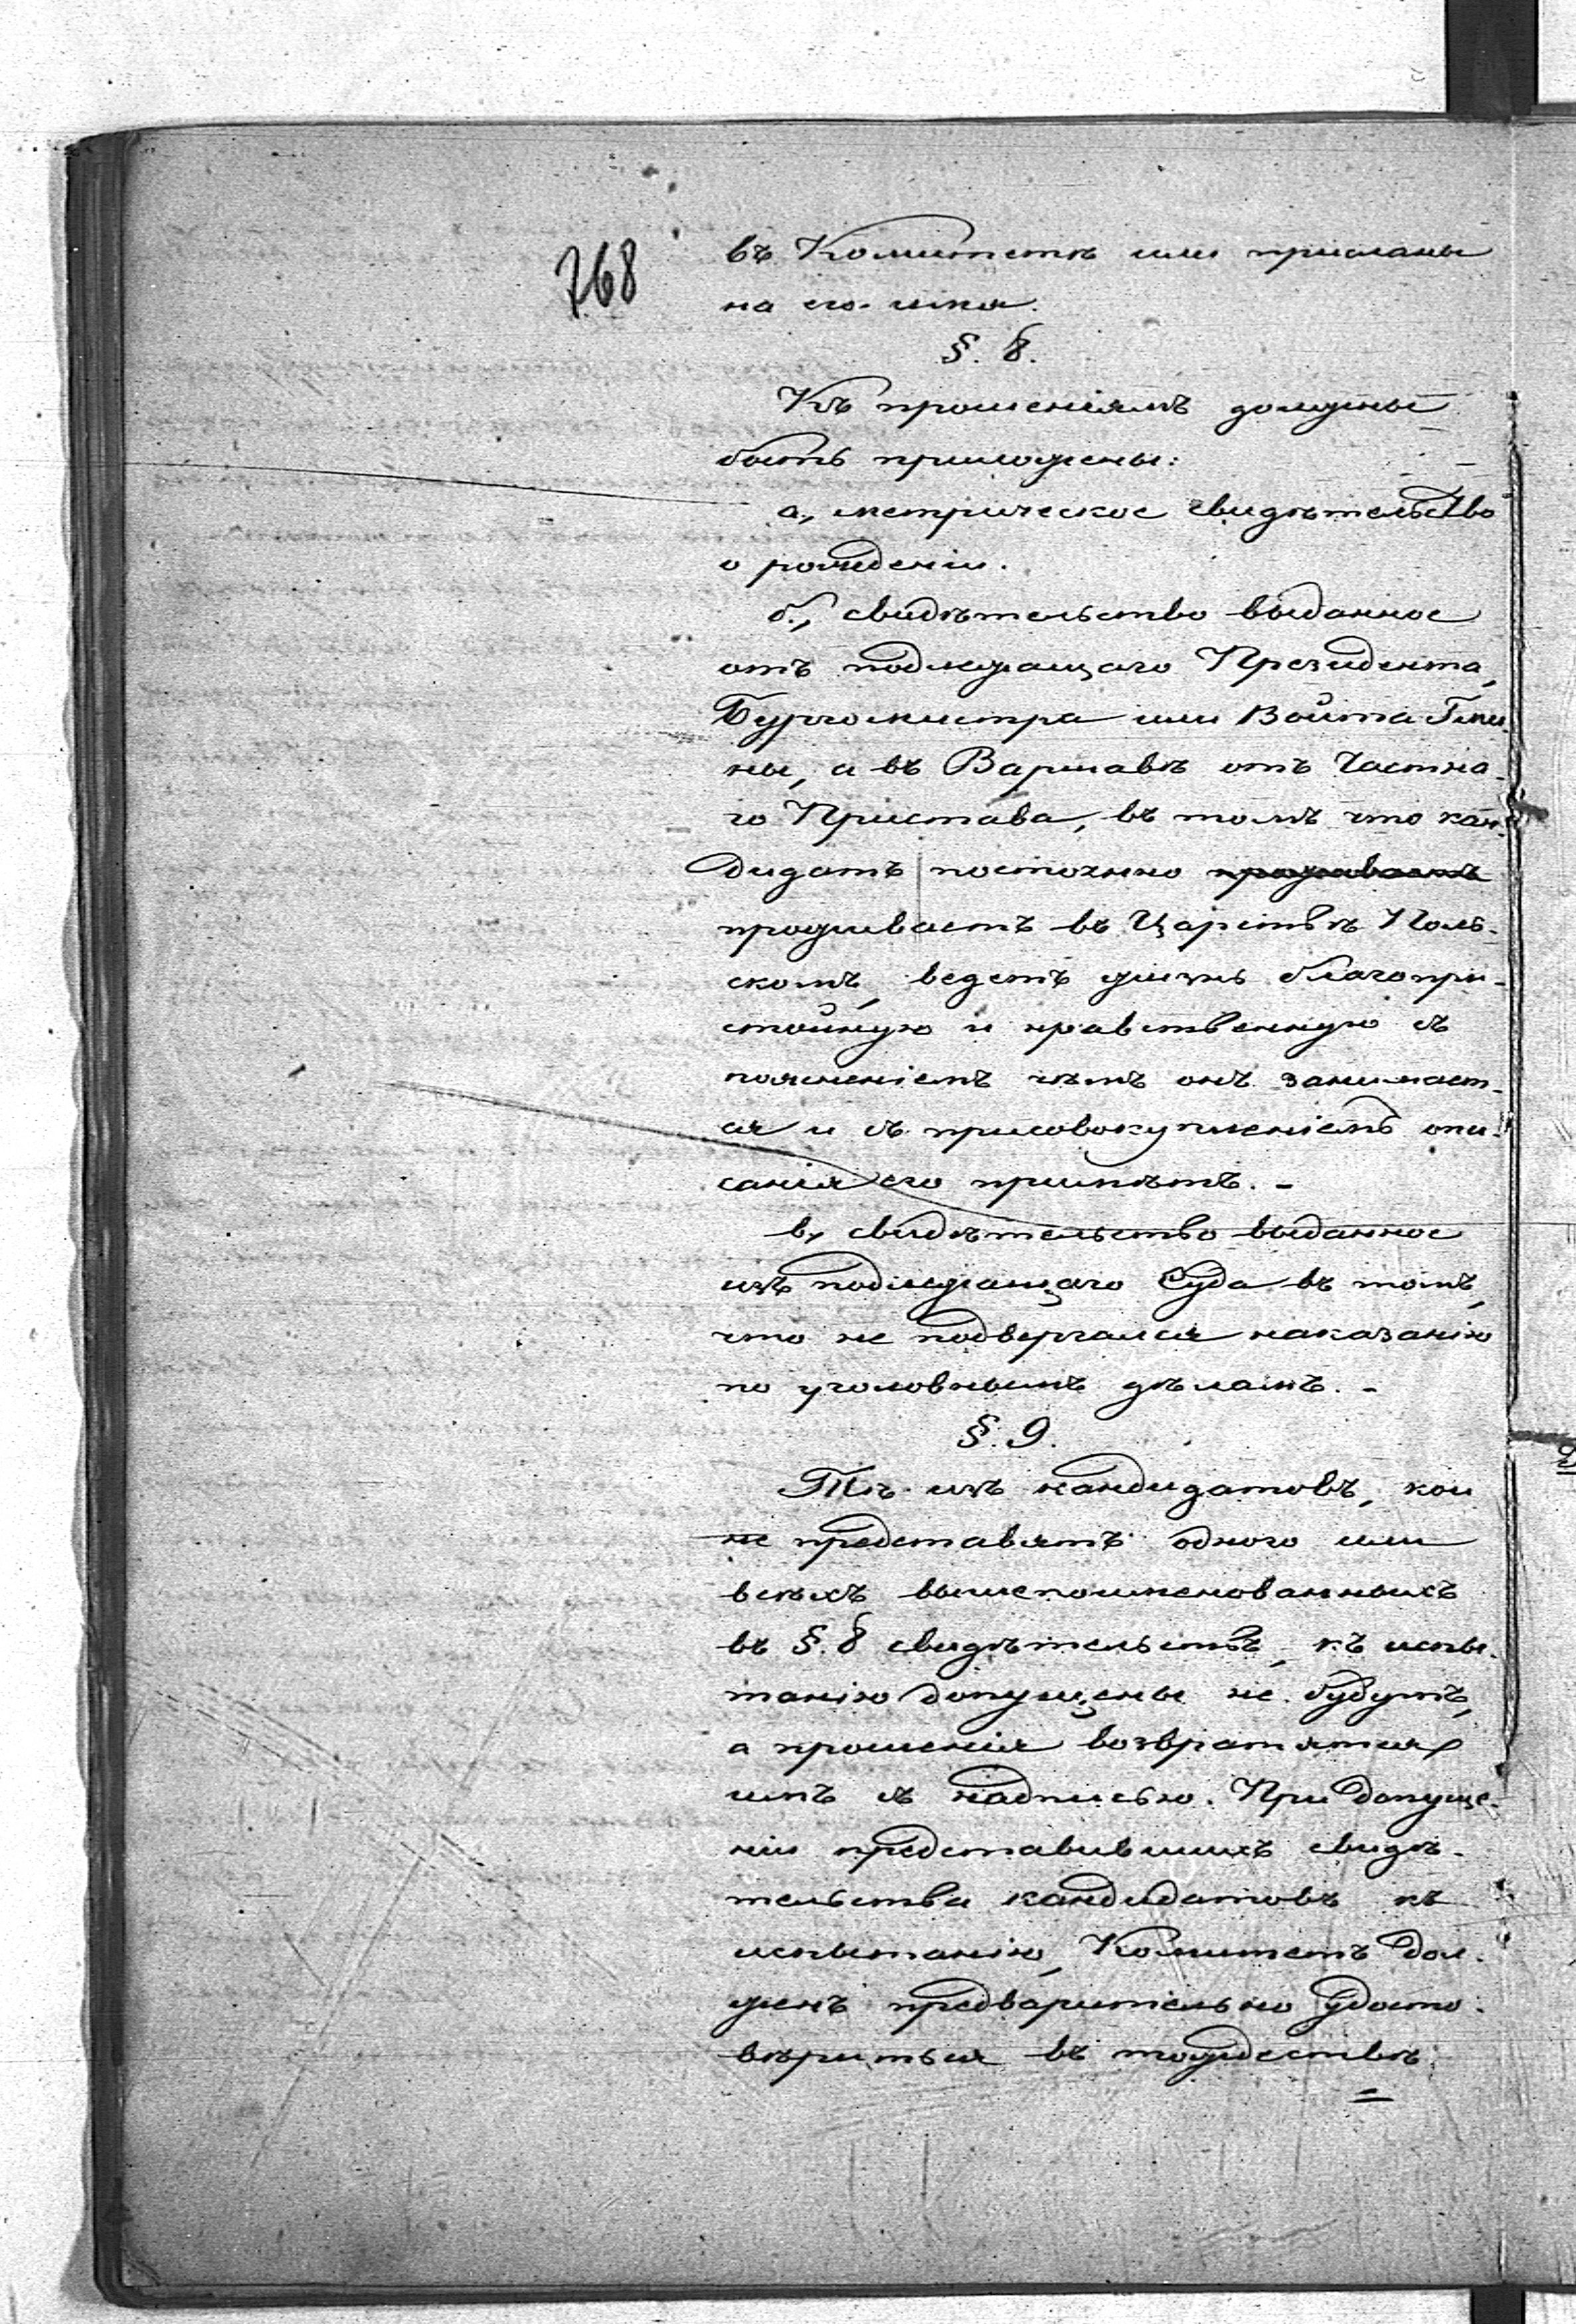 768
въ Комитетъ или присланы
на его имя.
§. 8.
Къ прошеніямъ должны
быть приложены:
а., метрическое свидѣтельство
о рожденіи.
б., свидѣтельство выданное
отъ подлежащаго Президента,
Бургомистра или Войта Гми-
ны, а въ Варшавѣ отъ Частна-
го Пристава, въ томъ что кан-
дидатъ постоянно проживаетъ
проживаетъ въ Царствѣ Поль-
скомъ, ведетъ жизнь благопри-
стойную и нравственную съ
поясненіемъ чѣмъ онъ занимает-
ся и съ присовокупленіемъ опи-
санія его примѣтъ. -
в., свидѣтельство выданное
изъ подлежащаго Суда въ томъ,
что не подвергался наказанію
по уголовнымъ дѣламъ. -
§. 9.
Тѣ изъ кандидатовъ, кои
не представятъ одного или
всѣхъ вышепоименованныхъ
въ §. 8 свидѣтельствъ, къ испы-
танію допущены не будутъ,
а прошенія возвратятся
имъ съ надписью. При допуще-
ніи представившихъ свидѣ-
тельства кандидатовъ къ
испытанію, Комитетъ дол-
женъ предварительно удосто-
вѣриться въ тождествѣ